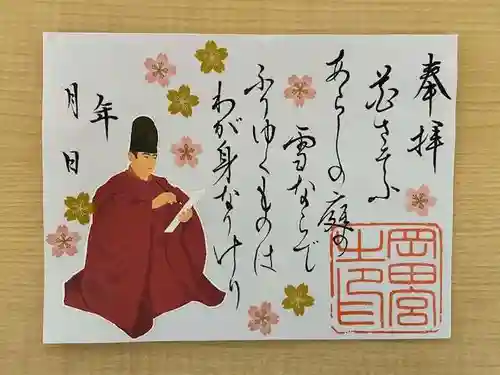 奉拝
花さそふ
あらしの庭の
雪ならで
ふりゆくものは
わが身なりけり
年
月 日
岡田宮
之印